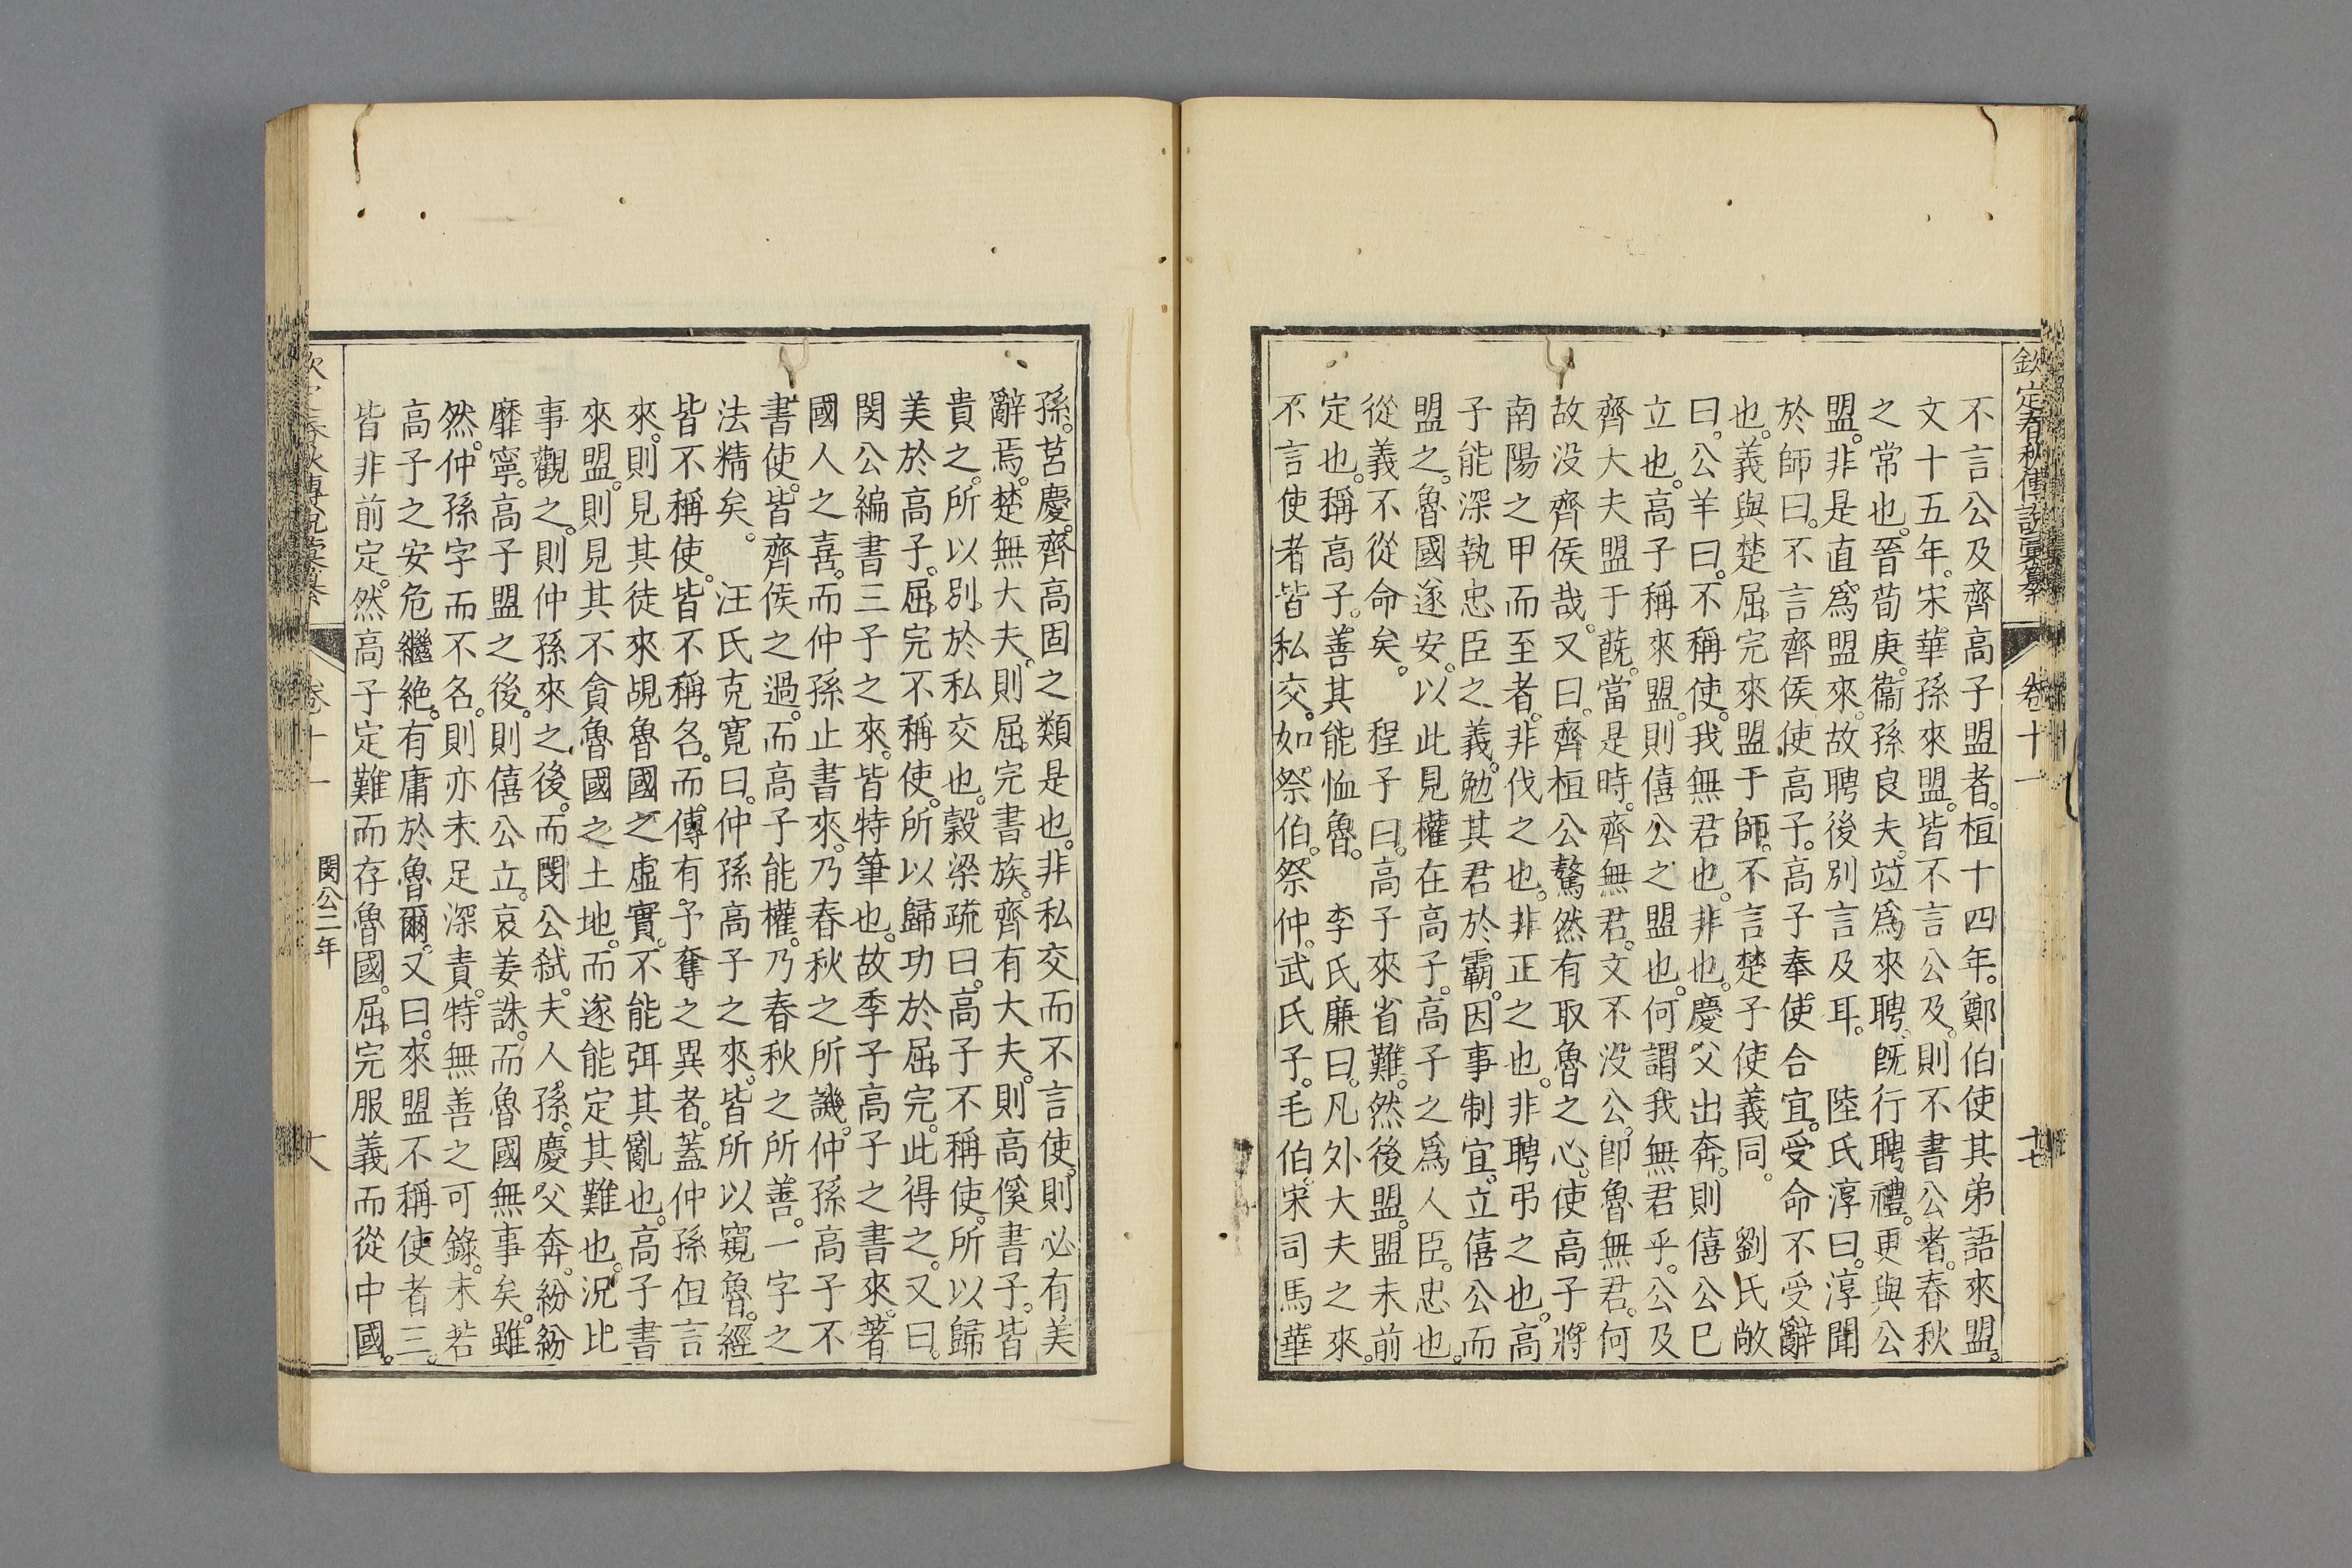 欽定春秋傳說彙纂 卷十一 十七
不言公及齊高子盟者。桓十四年。鄭伯使其弟語來盟。
文十五年。宋華孫來盟。皆不言公及。則不書公者。春秋
之常也。晉荀庚。衞孫良夫。竝爲來聘。旣行聘禮。更與公
盟。非是直爲盟來。故聘後別言及耳。 陸氏淳曰。淳聞
於師曰。不言齊侯使高子。高子奉使合宜。受命不受辭
也。義與楚屈完來盟于師。不言楚子使義同。 劉氏敞
曰。公羊曰。不稱使。我無君也。非也。慶父出奔。則僖公已
立也。高子稱來盟。則僖公之盟也。何謂我無君乎。公及
齊大夫盟于蔇。當是時。齊無君。文不没公。卽魯無君。何
故没齊侯哉。又曰。齊桓公驁然有取魯之心。使高子將
南陽之甲而至者。非伐之也。非正之也。非聘弔之也。高
子能深執忠臣之義。勉其君於霸。因事制宜。立僖公而
盟之。魯國遂安。以此見權在高子。高子之爲人臣。忠也。
從義不從命矣。 程子曰。高子來省難。然後盟。盟未前
定也。稱高子。善其能恤魯。 李氏廉曰。凡外大夫之來。
不言使者皆私交。如祭伯。祭仲。武氏子。毛伯。宋司馬華
孫。莒慶。齊高固之類是也。非私交而不言使。則必有美
辭焉。楚無大夫。則屈完書族。齊有大夫。則高傒書子。皆
貴之。所以別於私交也。穀梁疏曰。高子不稱使。所以歸
美於高子。屈完不稱使。所以歸功於屈完。此得之。又曰。
閔公編書三子之來。皆特筆也。故季子高子之書來。著
國人之喜。而仲孫止書來。乃春秋之所譏。仲孫高子不
書使。皆齊侯之過。而高子能權。乃春秋之所善。一字之
法精矣。 汪氏克寬曰。仲孫高子之來。皆所以窺魯。經
皆不稱使。皆不稱名。而傳有予奪之異者。蓋仲孫但言
來。則見其徒來覘魯國之虛實。不能弭其亂也。高子書
來盟。則見其不貪魯國之土地。而遂能定其難也。況比
事觀之。則仲孫來之後。而閔公弑。夫人孫。慶父奔。紛紛
靡寧。高子盟之後。則僖公立。哀姜誅。而魯國無事矣。雖
然。仲孫字而不名。則亦未足深責。特無善之可錄。未若
高子之安危繼絶。有庸於魯爾。又曰。來盟不稱使者三。
皆非前定。然高子定難而存魯國。屈完服義而從中國。
卷十一 閔公二年 十八